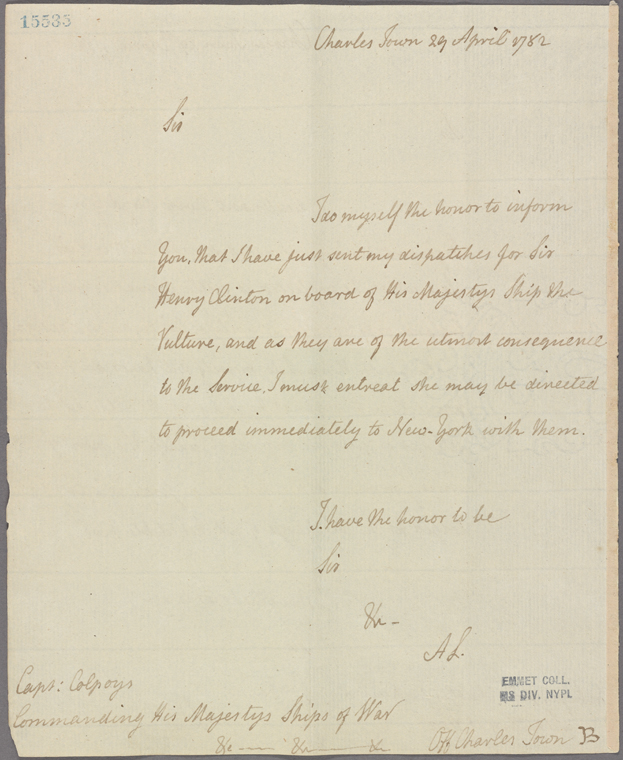 15535
Charles Town 29 April 1782
Sir
I do myself the honor to inform
You, that I have just sent my dispatches for Sir
Henry Clinton on board of His Majestys Ship the
Vulture, and as they are of the utmost consequence
to the Service, I must entreat she may be directed
to proceed immediately to New-York with them.
I have the honor to be
Sir
&c -
A L.
EMMET COLL.
MS DIV. NYPL
Capt: Colpoys
Commanding His Majestys Ships of War
&c - &c - &c Off Charles Town B